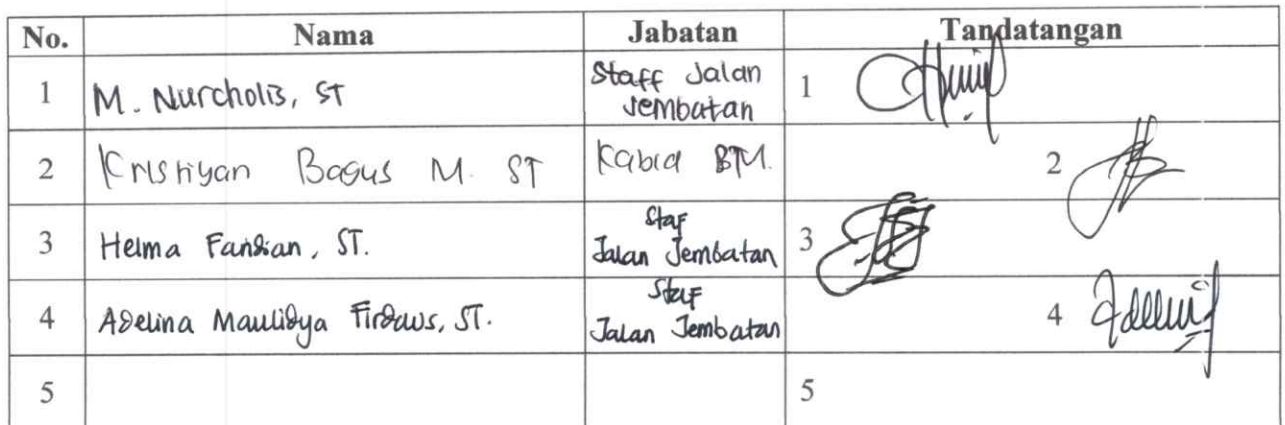 No. Nama Jabatan Tandatangan
1 M. Nurcholis, ST Staff Jalan Jembatan 1
2 Kristiyan Bagus M. ST Kabid BTM. 2
3 Helma Fandian, ST. Staf Jalan Jembatan 3
4 Adelina Maulidya Firdaus, ST. Staf Jalan Jembatan 4
5 5